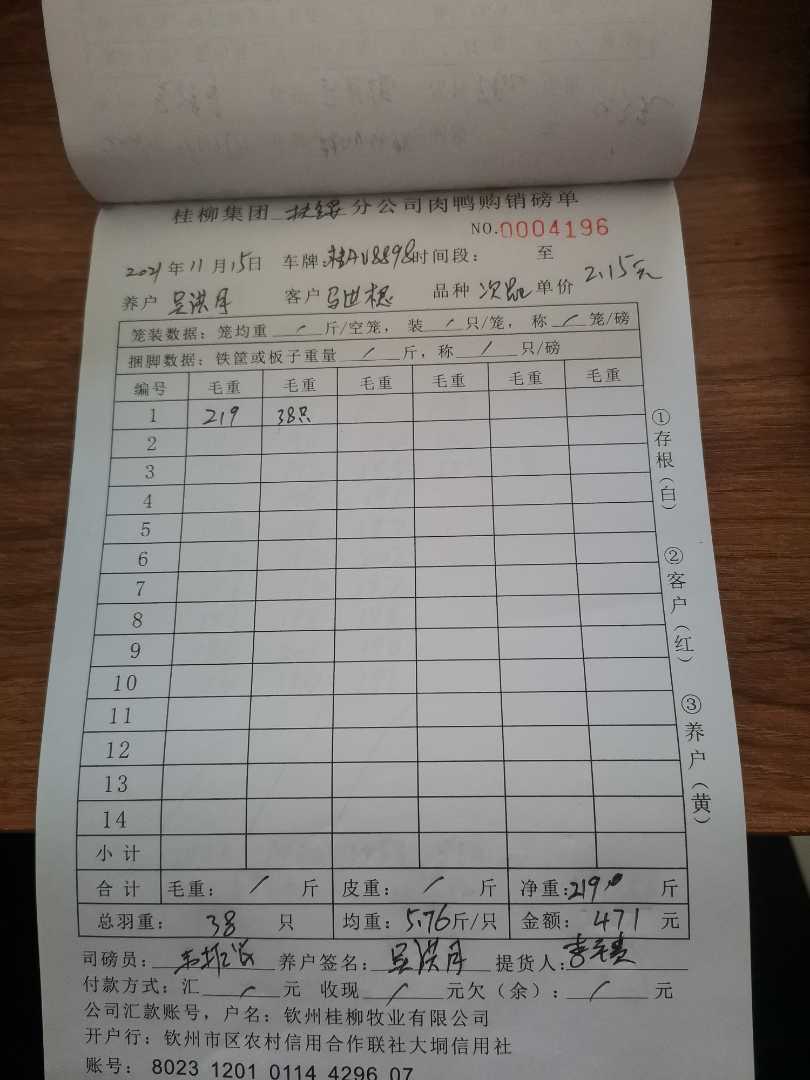 桂柳集团 扶绥 分公司肉鸭购销磅单
NO.0004196
2021年11月15日 车牌:桂AU8898时间段: 至
养户 吴洪月 客户 马世稳 品种 次品 单价 2.15元
笼装数据: 笼均重 / 斤/空笼, 装 / 只/笼, 称 / 笼/磅
捆脚数据: 铁筐或板子重量 / 斤, 称 / 只/磅
编号 毛重 毛重 毛重 毛重 毛重 毛重
1 219 38只
2
3
4
5
6
7
8
9
10
11
12
13
14
小计
合计 毛重: / 斤 皮重: / 斤 净重:219.0 斤
总羽重: 38 只 均重: 5.76斤/只 金额: 471 元
司磅员: 养户签名: 吴洪月 提货人:
付款方式: 汇 / 元 收现 / 元欠(余): / 元
公司汇款账号, 户名: 钦州桂柳牧业有限公司
开户行: 钦州市区农村信用合作联社大垌信用社
账号: 8023 1201 0114 4296 07
①存根(白)
②客户(红)
③养户(黄)